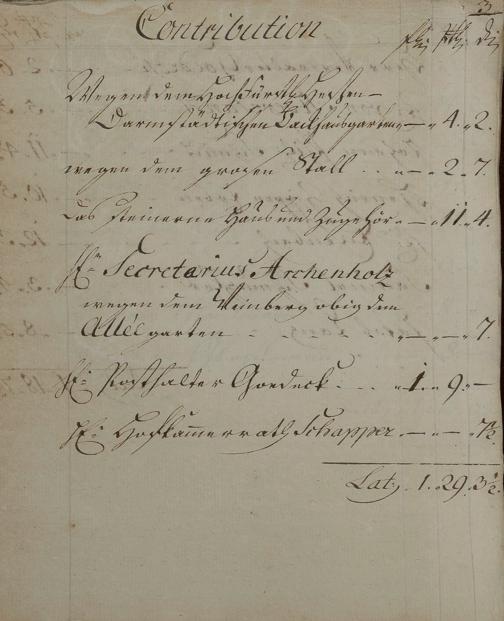 3.
Contribution
Wegen dem HochFürstl. Hessen-
Darmstädtischen Backhausgarten — 4. 2.
wegen dem grosen Stall . . — 2. 7.
das steinerne Haus und Zugehör. — 11. 4.
Hr. Secretarius Archenholz
wegen dem Weinberg obig dem
Allée garten - - - — — 7.
Hr. Posthalter Goedeck. . . 1. 9. —
Hr. Hofkammerrath Schapper. — — 7½.
Lat. 1. 29. 3½.